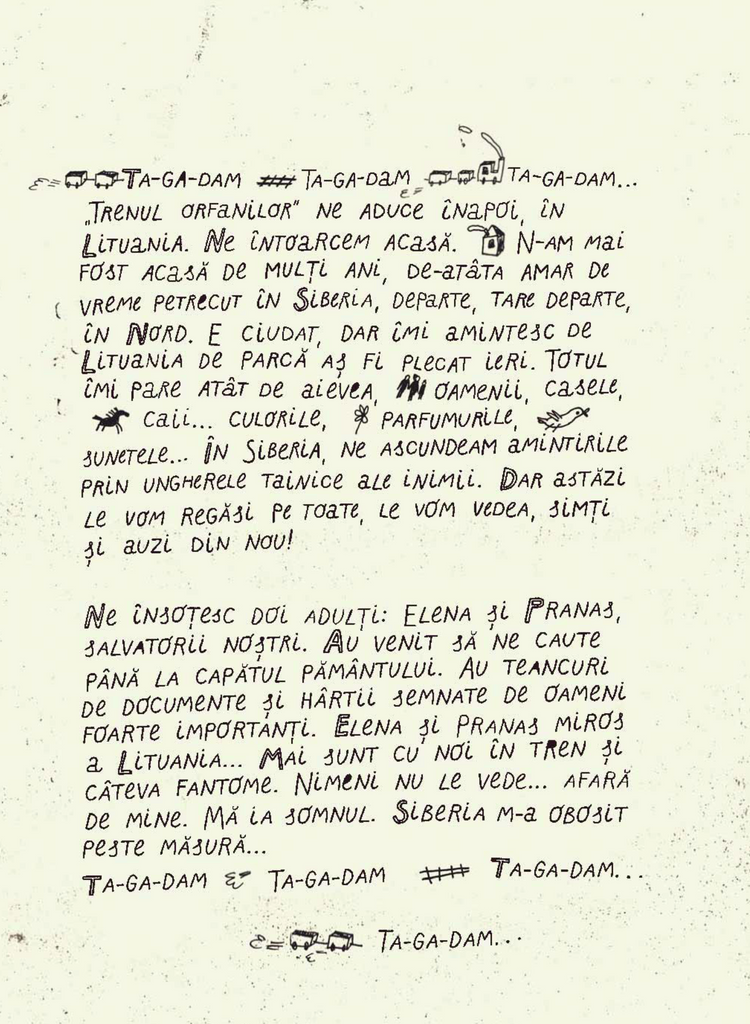 TA-GA-DAM TA-GA-DAM TA-GA-DAM...
„TRENUL ORFANILOR” NE ADUCE ÎNAPOI, ÎN
LITUANIA. NE ÎNTOARCEM ACASĂ. N-AM MAI
FOST ACASĂ DE MULȚI ANI, DE-ATÂTA AMAR DE
VREME PETRECUT ÎN SIBERIA, DEPARTE, TARE DEPARTE,
ÎN NORD. E CIUDAT, DAR ÎMI AMINTESC DE
LITUANIA DE PARCĂ AȘ FI PLECAT IERI. TOTUL
ÎMI PARE ATÂT DE AIEVEA, OAMENII, CASELE,
CAII... CULORILE, PARFUMURILE,
SUNETELE... ÎN SIBERIA, NE ASCUNDEAM AMINTIRILE
PRIN UNGHERELE TAINICE ALE INIMII. DAR ASTĂZI
LE VOM REGĂSI PE TOATE, LE VOM VEDEA, SIMȚI
ȘI AUZI DIN NOU!
NE ÎNSOȚESC DOI ADULȚI: ELENA ȘI PRANAS,
SALVATORII NOȘTRI. AU VENIT SĂ NE CAUTE
PÂNĂ LA CAPĂTUL PĂMÂNTULUI. AU TEANCURI
DE DOCUMENTE ȘI HÂRTII SEMNATE DE OAMENI
FOARTE IMPORTANȚI. ELENA ȘI PRANAS MIROS
A LITUANIA... MAI SUNT CU NOI ÎN TREN ȘI
CÂTEVA FANTOME. NIMENI NU LE VEDE... AFARĂ
DE MINE. MĂ IA SOMNUL. SIBERIA M-A OBOSIT
PESTE MĂSURĂ...
TA-GA-DAM TA-GA-DAM TA-GA-DAM...
TA-GA-DAM...